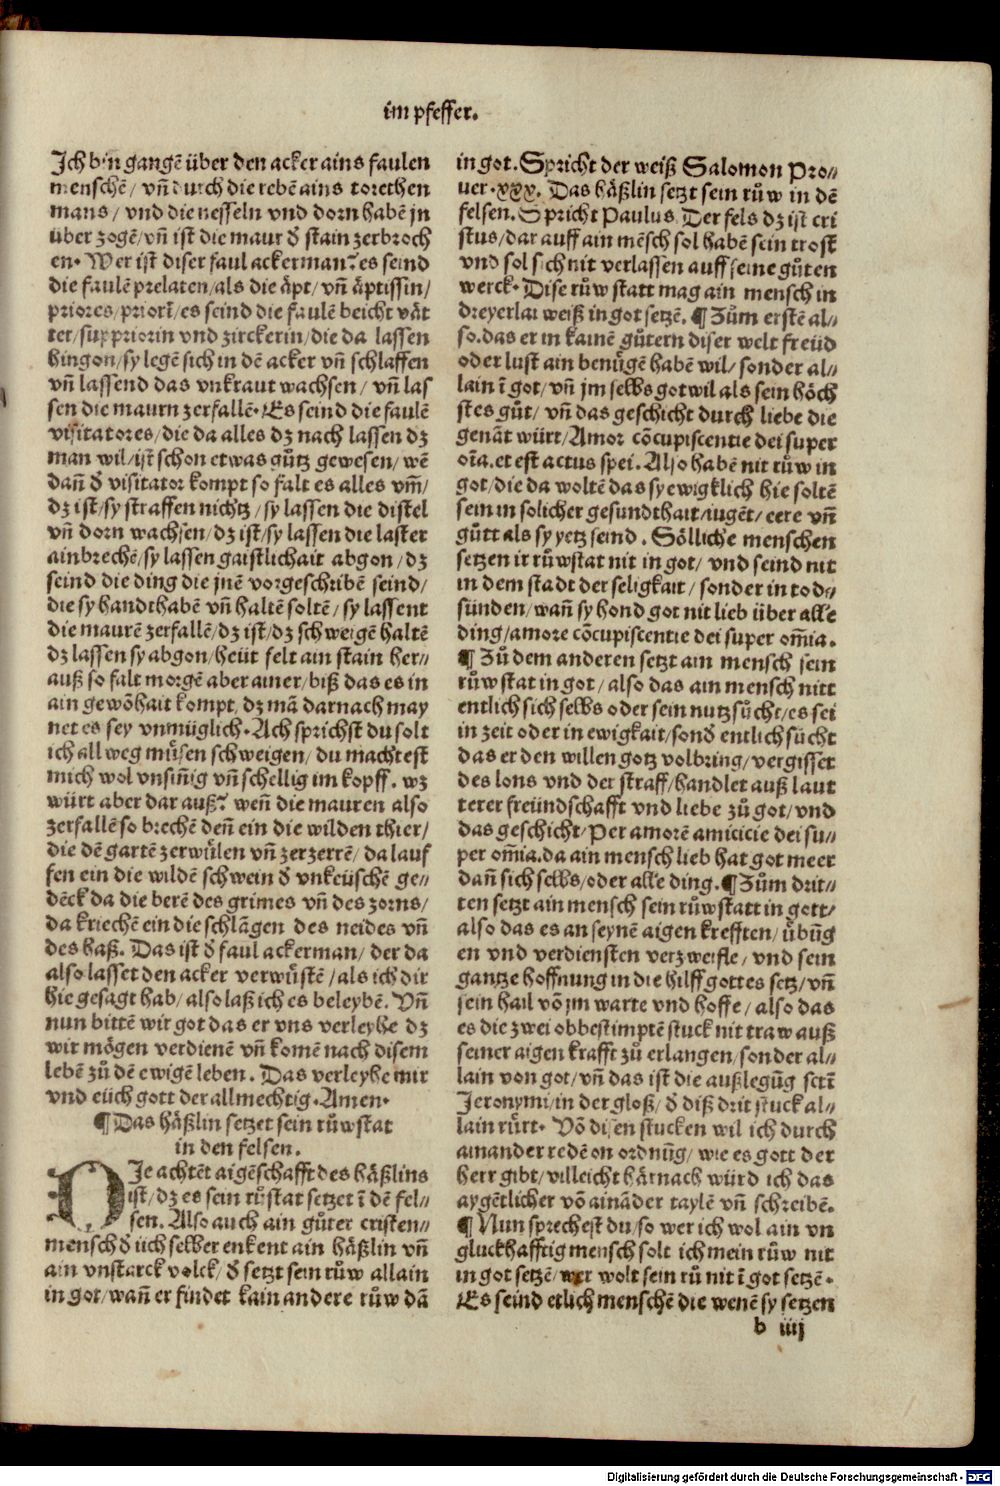 im pfeffer.
Ich bin gangē über den acker ains faulen
menschē / vn̄ durch die rebē ains torethen
mans / vnd die nesseln vnd dorn habē jn
über zogē / vn̄ ist die maur d̄ stain zerbroch
en. Wer ist diser faul ackerman? es seind
die faulē prelaten / als die äpt / vn̄ äptissin /
priores / priorī / es seind die faulē beicht vät
ter / suppriorin vnd zirckerin / die da lassen
hingon / sy legē sich in dē acker vn̄ schlaffen
vn̄ lassend das vnkraut wachsen / vn̄ las
sen die maurn zerfallē. Es seind die faulē
visitatores / die da alles dz nach lassen dz
man wil / ist schon etwas gůtz gewesen / wē
dan̄ d̄ visitator kompt so falt es alles vm̄ /
dz ist / sy straffen nichtz / sy lassen die distel
vn̄ dorn wachsen / dz ist / sy lassen die laster
ainbrechē / sy lassen gaistlichait abgon / dz
seind die ding die jnē vorgeschribē seind /
die sy handthabē vn̄ haltē soltē / sy lassent
die maurē zerfallē / dz ist / dz schweigē haltē
dz lassen sy abgon / heüt felt ain stain her⸗
auß so falt morgē aber ainer / biß das es in
ain gewōhait kompt / dz mā darnach may
net es sey vnmüglich. Ach sprichst du solt
ich all weg müsen schweigen / du machtest
mich wol vnsin̄ig vn̄ schellig im kopff. wz
würt aber dar auß? wen̄ die mauren also
zerfallē so brechē den̄ ein die wilden thier /
die dē gartē zerwůlen vn̄ zerzerrē / da lauf
fen ein die wildē schwein d̄ vnkeüschē ge⸗
dēck da die berē des grimes vn̄ des zorns /
da kriechē ein die schlāgen des neides vn̄
des haß. Das ist d̄ faul ackerman / der da
also lasset den acker verwůstē / als ich dir
hie gesagt hab / also laß ich es beleybē. Vn̄
nun bittē wir got das er vns verleyhe dz
wir mögen verdienē vn̄ komē nach disem
lebē zů dē ewigē leben. Das verleyhe mir
vnd eüch gott der allmechtig. Amen.
¶ Das häßlin setzet sein růwstat
in den felsen.
Die achtēt aigēschafft des häßlins
ist / dz es sein růstat setzet ī dē fel⸗
sen. Also auch ain gůter cristen⸗
mensch d̄ sich selber enkent ain häßlin vn̄
ain vnstarck volck / d̄ setzt sein růw allain
in got / wan̄ er findet kain andere růw dā
in got. Spricht der weiß Salomon Pro⸗
uer. xxx. Das häßlin setzt sein růw in dē
felsen. Spricht Paulus. Der fels dz ist cri
stus / dar auff ain mēsch sol habē sein trost
vnd sol sich nit verlassen auff seine gůten
werck. Dise růw statt mag ain mensch in
dreyerlai weiß in got setzē. ¶ Zům erstē al⸗
so. das er in kainē gůtern diser welt freüd
oder lust ain benügē habē wil / sonder al⸗
lain ī got / vn̄ jm selbs got wil als sein höch
stes gůt / vn̄ das geschicht durch liebe die
genāt würt / Amor cōcupiscentie dei super
oīa. et est actus spei. Also habē nit růw in
got / die da woltē das sy ewigklich hie soltē
sein in solicher gesundthait / iugēt / eere vn̄
gůtt als sy yetz seind. Sölliche menschen
setzen ir růwstat nit in got / vnd seind nit
in dem stadt der seligkait / sonder in tod⸗
sünden / wan̄ sy hond got nit lieb über alle
ding / amore cōcupiscentie dei super om̄ia.
¶ Zů dem anderen setzt ain mensch sein
růwstat in got / also das ain mensch nitt
entlich sich selbs oder sein nutz sůcht / es sei
in zeit oder in ewigkait / sond̄ entlich sücht
das er den willen gotz volbring / vergisset
des lons vnd der straff / handlet auß laut
terer freündschafft vnd liebe zů got / vnd
das geschicht / Per amorē amicicie dei su⸗
per om̄ia. da ain mensch lieb hat got meer
dan̄ sich selbs / oder alle ding. ¶ Zům drit⸗
ten setzt ain mensch sein růwstatt in gott /
also das es an seynē aigen krefften / übūg
en vnd verdiensten verzweifle / vnd sein
gantze hoffnung in die hilff gottes setz / vn̄
sein hail vō jm warte vnd hoffe / also das
es die zwei obbestimptē stuck nit traw auß
seiner aigen krafft zů erlangen / sonder al⸗
lain von got / vn̄ das ist die außlegūg sctī
Jeronymi / in der gloß / d̄ diß drit stuck al⸗
lain rürt. Vō disen stucken wil ich durch
ainander redē on ordnūg / wie es gott der
herr gibt / villeicht härnach würd ich das
aygētlicher vō ainäder taylē vn̄ schreibē.
¶ Nun sprechest du / so wer ich wol ain vn
gluckhafftig mensch solt ich mein růw nit
in got setzē / wer wolt sein rů nit ī got setzē.
Es seind etlich menschē die wenē sy setzen
b iiij
Digitalisierung gefördert durch die Deutsche Forschungsgemeinschaft - DFG